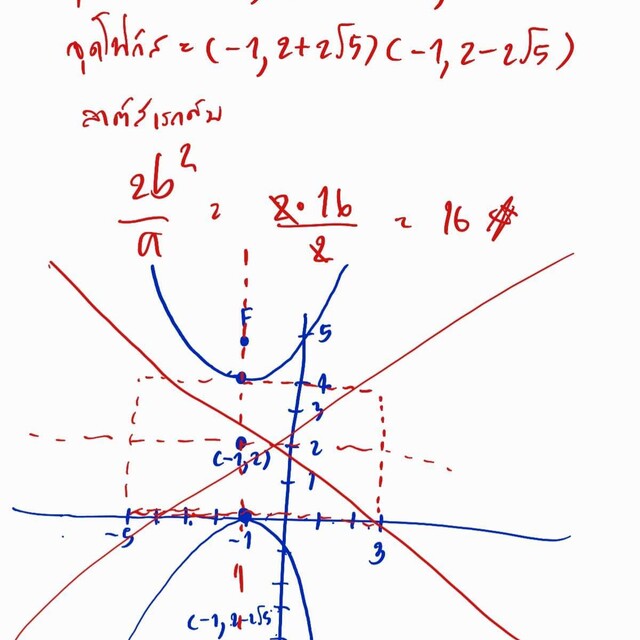 จุดโฟกัส = (-1, 2+2√5) (-1, 2-2√5)
ลาตัสเรกตัม
2b²/a = 2·16/2 = 16 #
F
5
4
3
(-1,2) 2
1
-5 -1 3
(-1, 2-2√5)